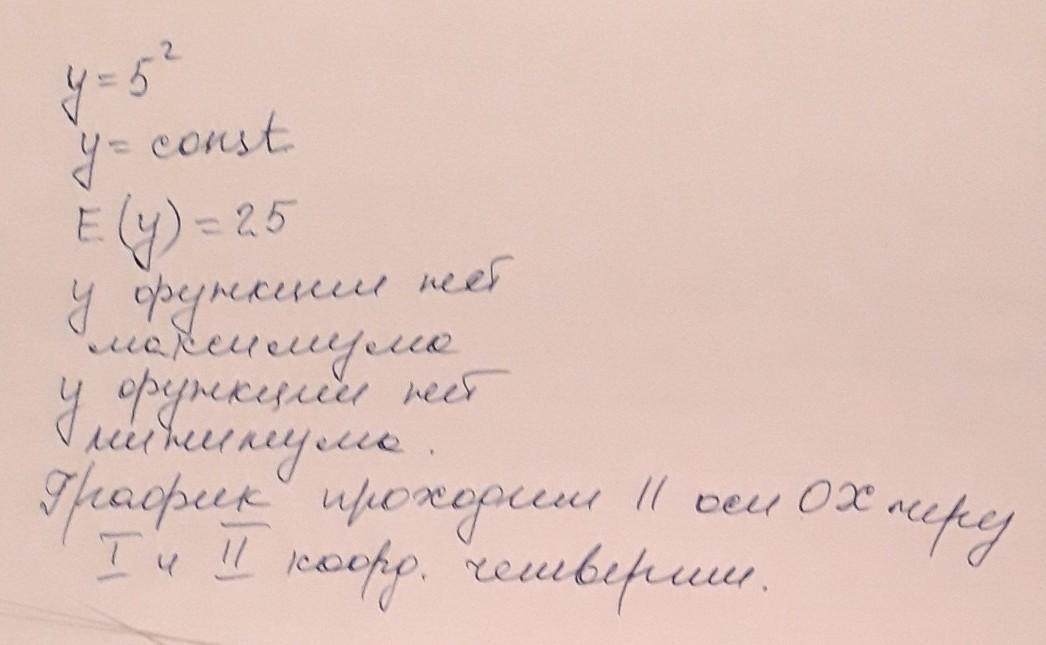 y = 5²
y = const
E(y) = 25
у функции нет
максимума
у функции нет
минимума.
График проходит || оси OX
I и II коорд. четверти.